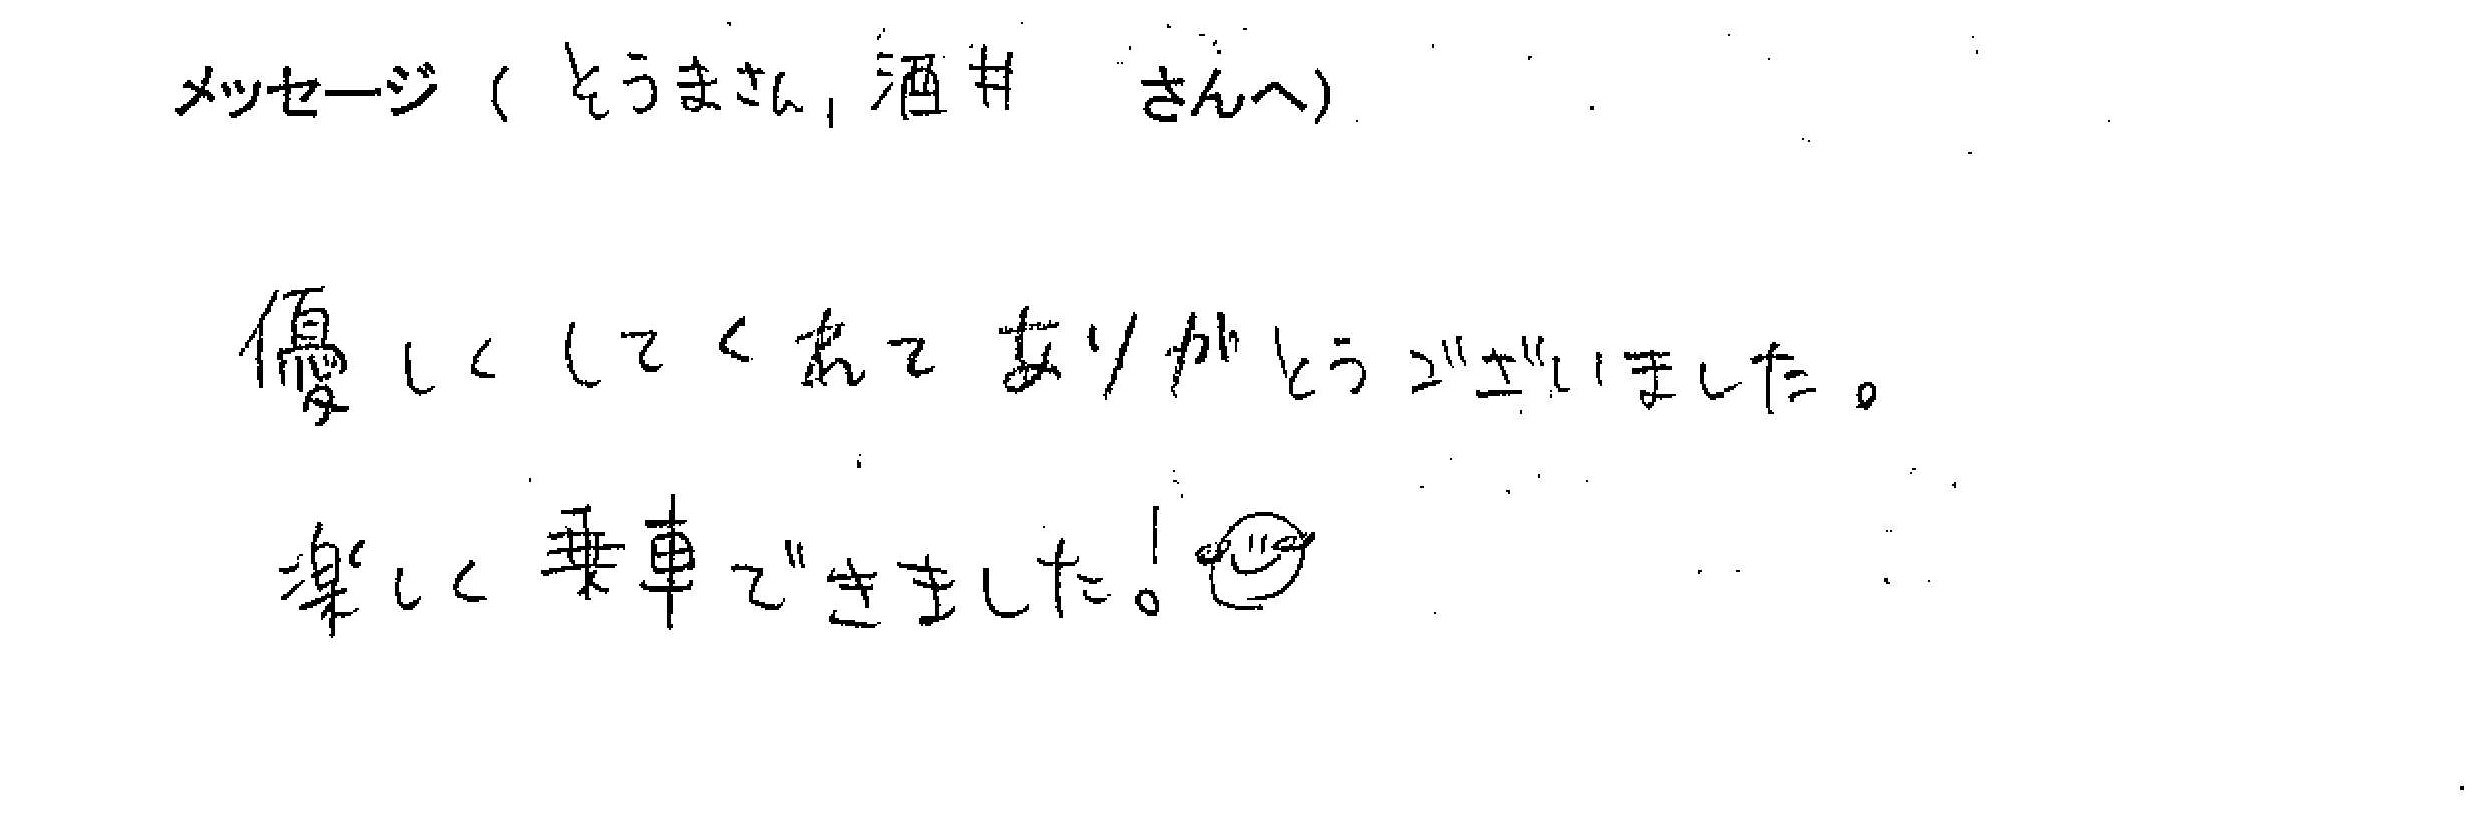 メッセージ（とうまさん,酒井 さんへ）
優しくしてくれてありがとうございました。
楽しく乗車できました!